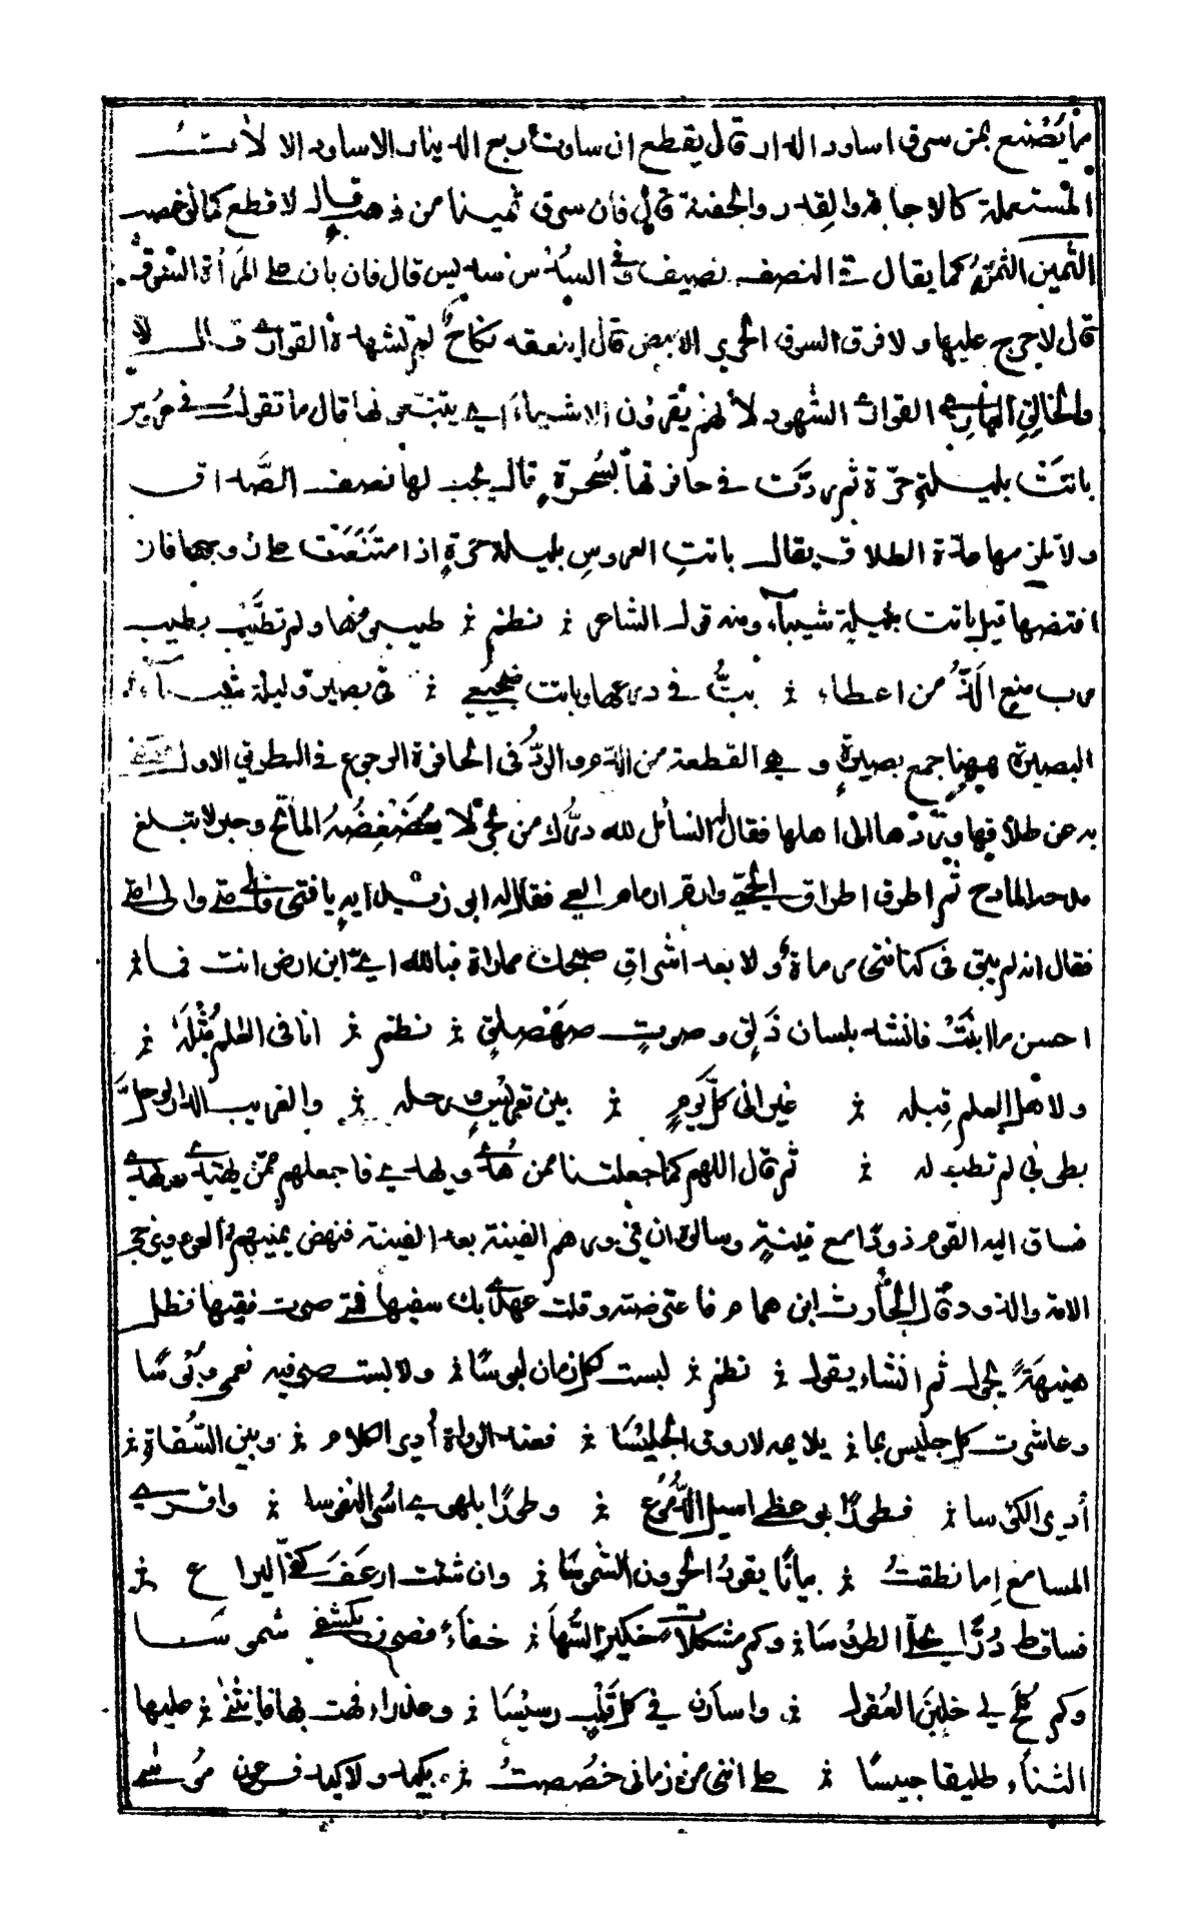 ما يصنع بمن سرق اساود الدار قال يقطع ان ساوت ربع الدينار الاساود الا لات
المستعملة كالاجانة والقدر والجفنة قال فان سرق ثمينا من ذهب قال لا قطع كما لو غصب
الثمين الثمن كما يقال في النصف نصيف وفي السدس سديس قال فان بان على المرأة السرق
قال لا حرج عليها ولا فرق السرق الحرير الابيض قال اينعقد نكاح لم يشهده القواري قال لا
والخالق الباري القواري الشهود لانهم يقرون الاشياء اي يتتبعونها قال ما تقول في عروس
باتت بليلة حرة ثم ردت في حافرتها بسحرة قال يجب لها نصف الصداق
ولا تلزمها عدة الطلاق يقال باتت العروس بليلة حرة اذا امتنعت على زوجها فان
افتضها قيل باتت بليلة شيباء ومنه قول الشاعر نظم طيبوها ولم تطيب بطيب
رب منع الذ من اعطاء بت في درعها وباتت ضجيعي في بصير وليلة شيباء
البصيرة ههنا جمع بصيرة وهي القطعة من الدم والرد في الحافرة الرجوع في الطريق الاول
به عن طلاقها وردها الى اهلها فقال له السائل لله درك من بحر لا يغضغضه الماتح وحبر لا يبلغ
مدحه المادح ثم اطرق اطراق الحيي وارم ارمام العي فقال له ابو زيد ايه يا فتى فالى متى والى متى
فقال انه لم يبق في كنانتي مرماة ولا بعد اشراق صبحك مماراة فبالله اي ابن ارض انت فما
احسن ما ابنت فانشد بلسان ذلق وصوت صهصلق نظم انا في العلم مثله
ولاهل العلم قبله غير اني كل يوم بين تعريس ورحله والغريب الدار لو حل
بطوبى لم تطب له ثم قال اللهم كما جعلتنا ممن هدي ويهدي فاجعلهم ممن يهتدي ويهدي
فساق اليه القوم ذودا مع قينة وسالوه ان يزورهم الفينة بعد الفينة فنهض يمنيهم العود ويزجي
الامة والذود قال الحارث ابن همام فاعترضته وقلت عهدي بك سفيها فمتى صرت فقيها فظل
هنيهة يجول ثم انشاء يقول نظم لبست لكل زمان لبوسا ولابست صرفيه نعمى وبوسا
وعاشرت كل جليس بما يلايمه لاروق الجليسا فعند الرواة أدير الكلام وبين السقاة
أدير الكوسا فطورا بوعظي اسيل الدموع وطورا بلهوي اسر النفوسا واقري
المسامع اما نطقت بيانا يقود الحرون الشموسا وان شئت ارعف كفي اليراع
فساقط درا يحلي الطروسا وكم مشكلات حكين السها خفاء فصرن بكشفي شموسا
وكم ملح لي خلبن العقول واسارن في كل قلب رسيسا وعذراء فهت بها فانثنى عليها
الثناء طليقا حبيسا على انني من زماني خصصت بكيد ولا كيد فرعون موسى